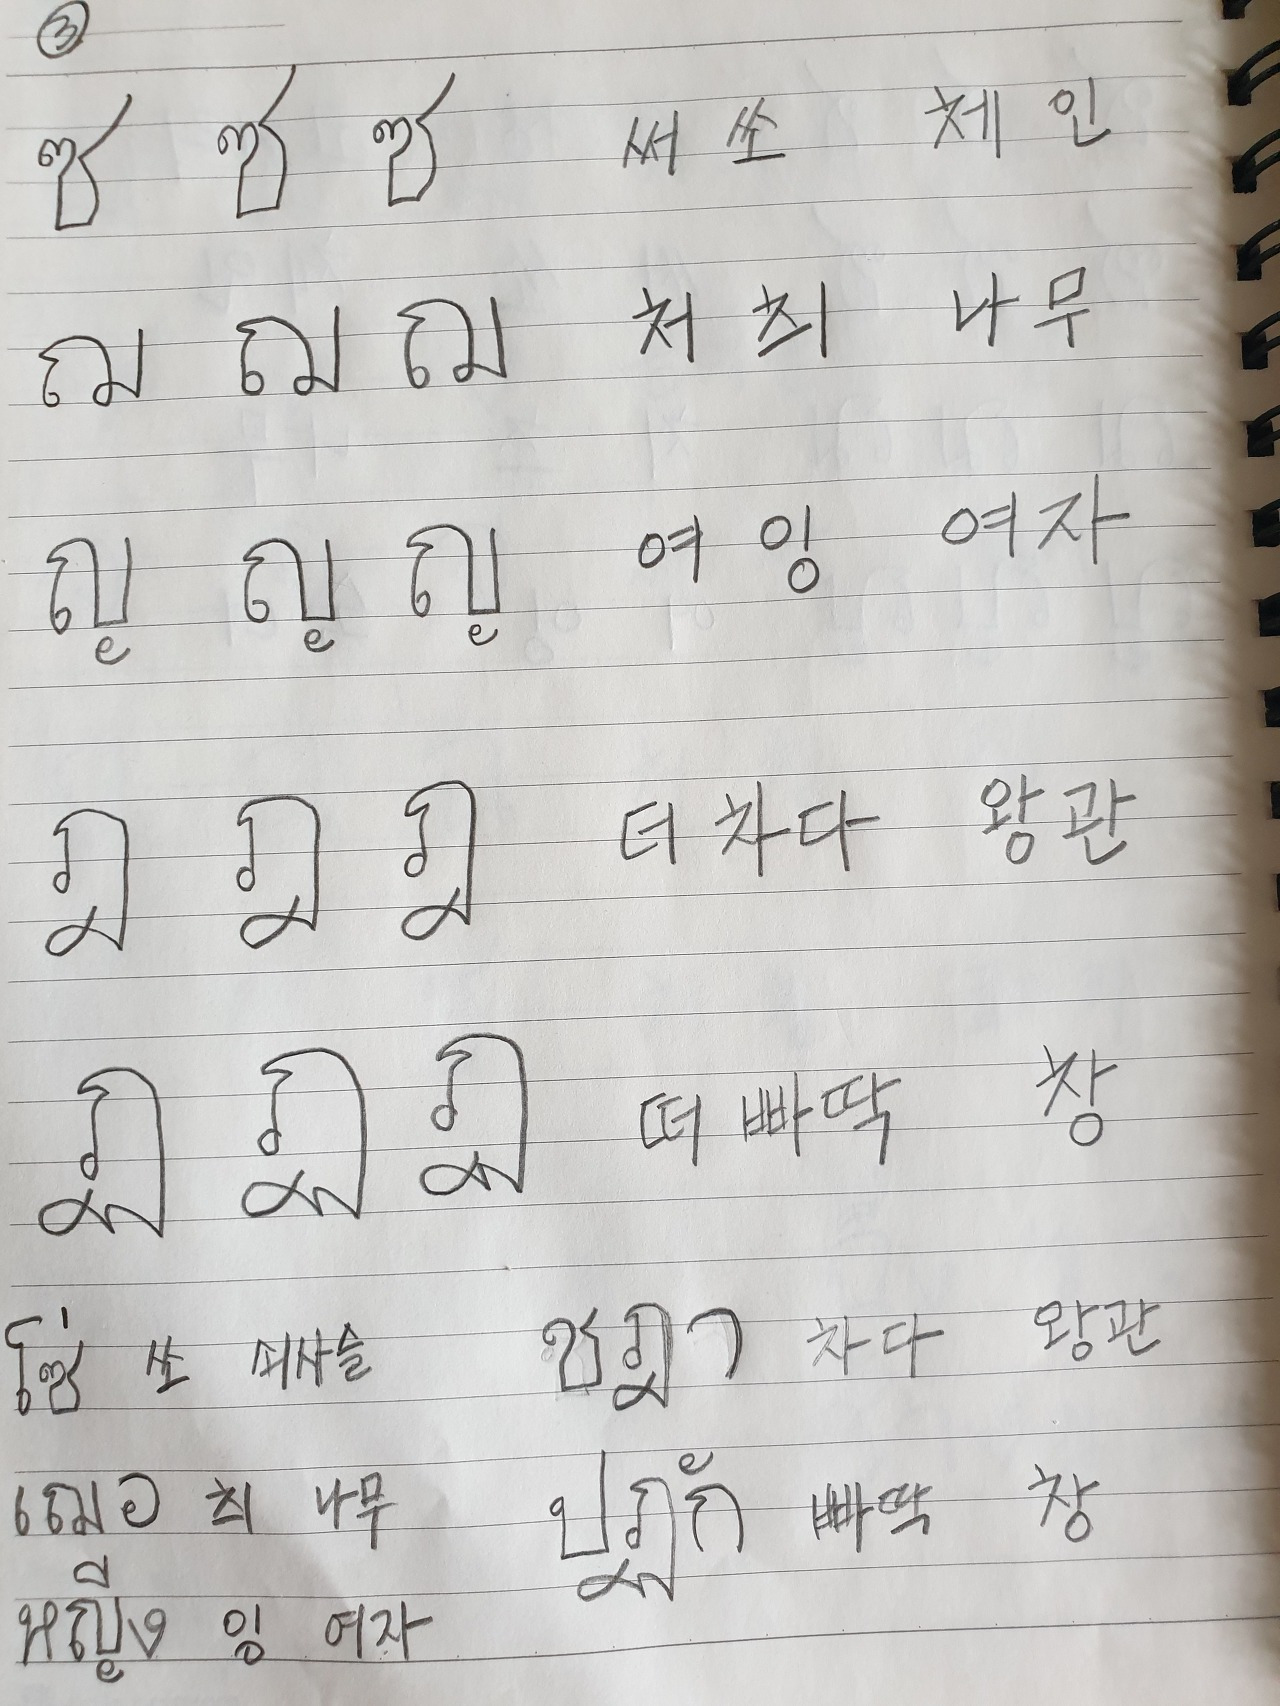 ③
ซ ซ ซ 써 쏘 체인
ฌ ฌ ฌ 처 최 나무
ญ ญ ญ 여 잉 여자
ฎ ฎ ฎ 더 차다 왕관
ฏ ฏ ฏ 떠 빠딱 창
โซ่ 쏘 쇠사슬 ชฎา 차다 왕관
เฌอ 최 나무 ปฏัก 빠딱 창
หญิง 잉 여자